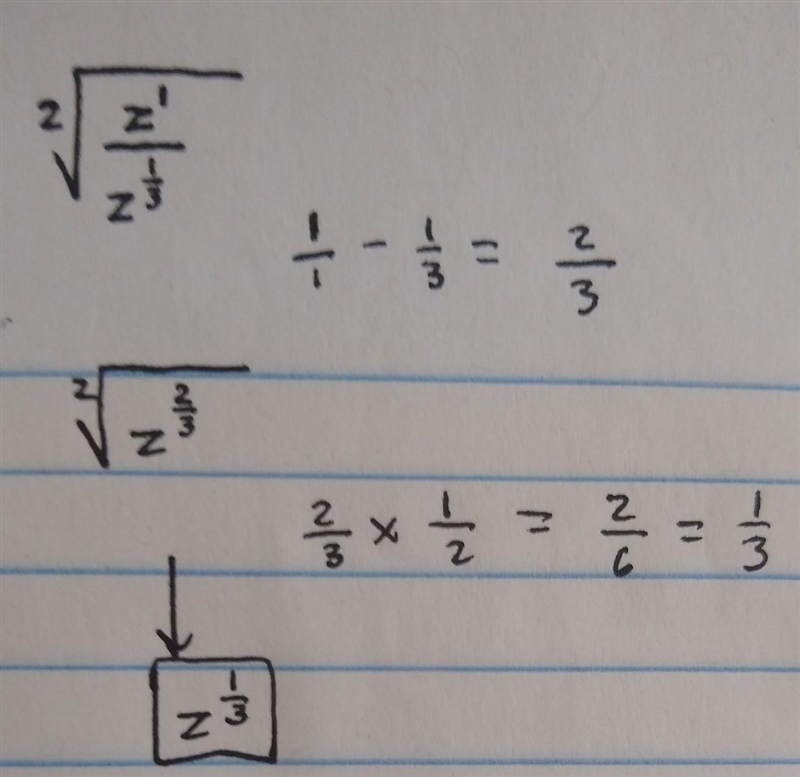 ²√(z¹/z^(1/3))
1/1 - 1/3 = 2/3
²√(z^(2/3))
2/3 × 1/2 = 2/6 = 1/3
z^(1/3)